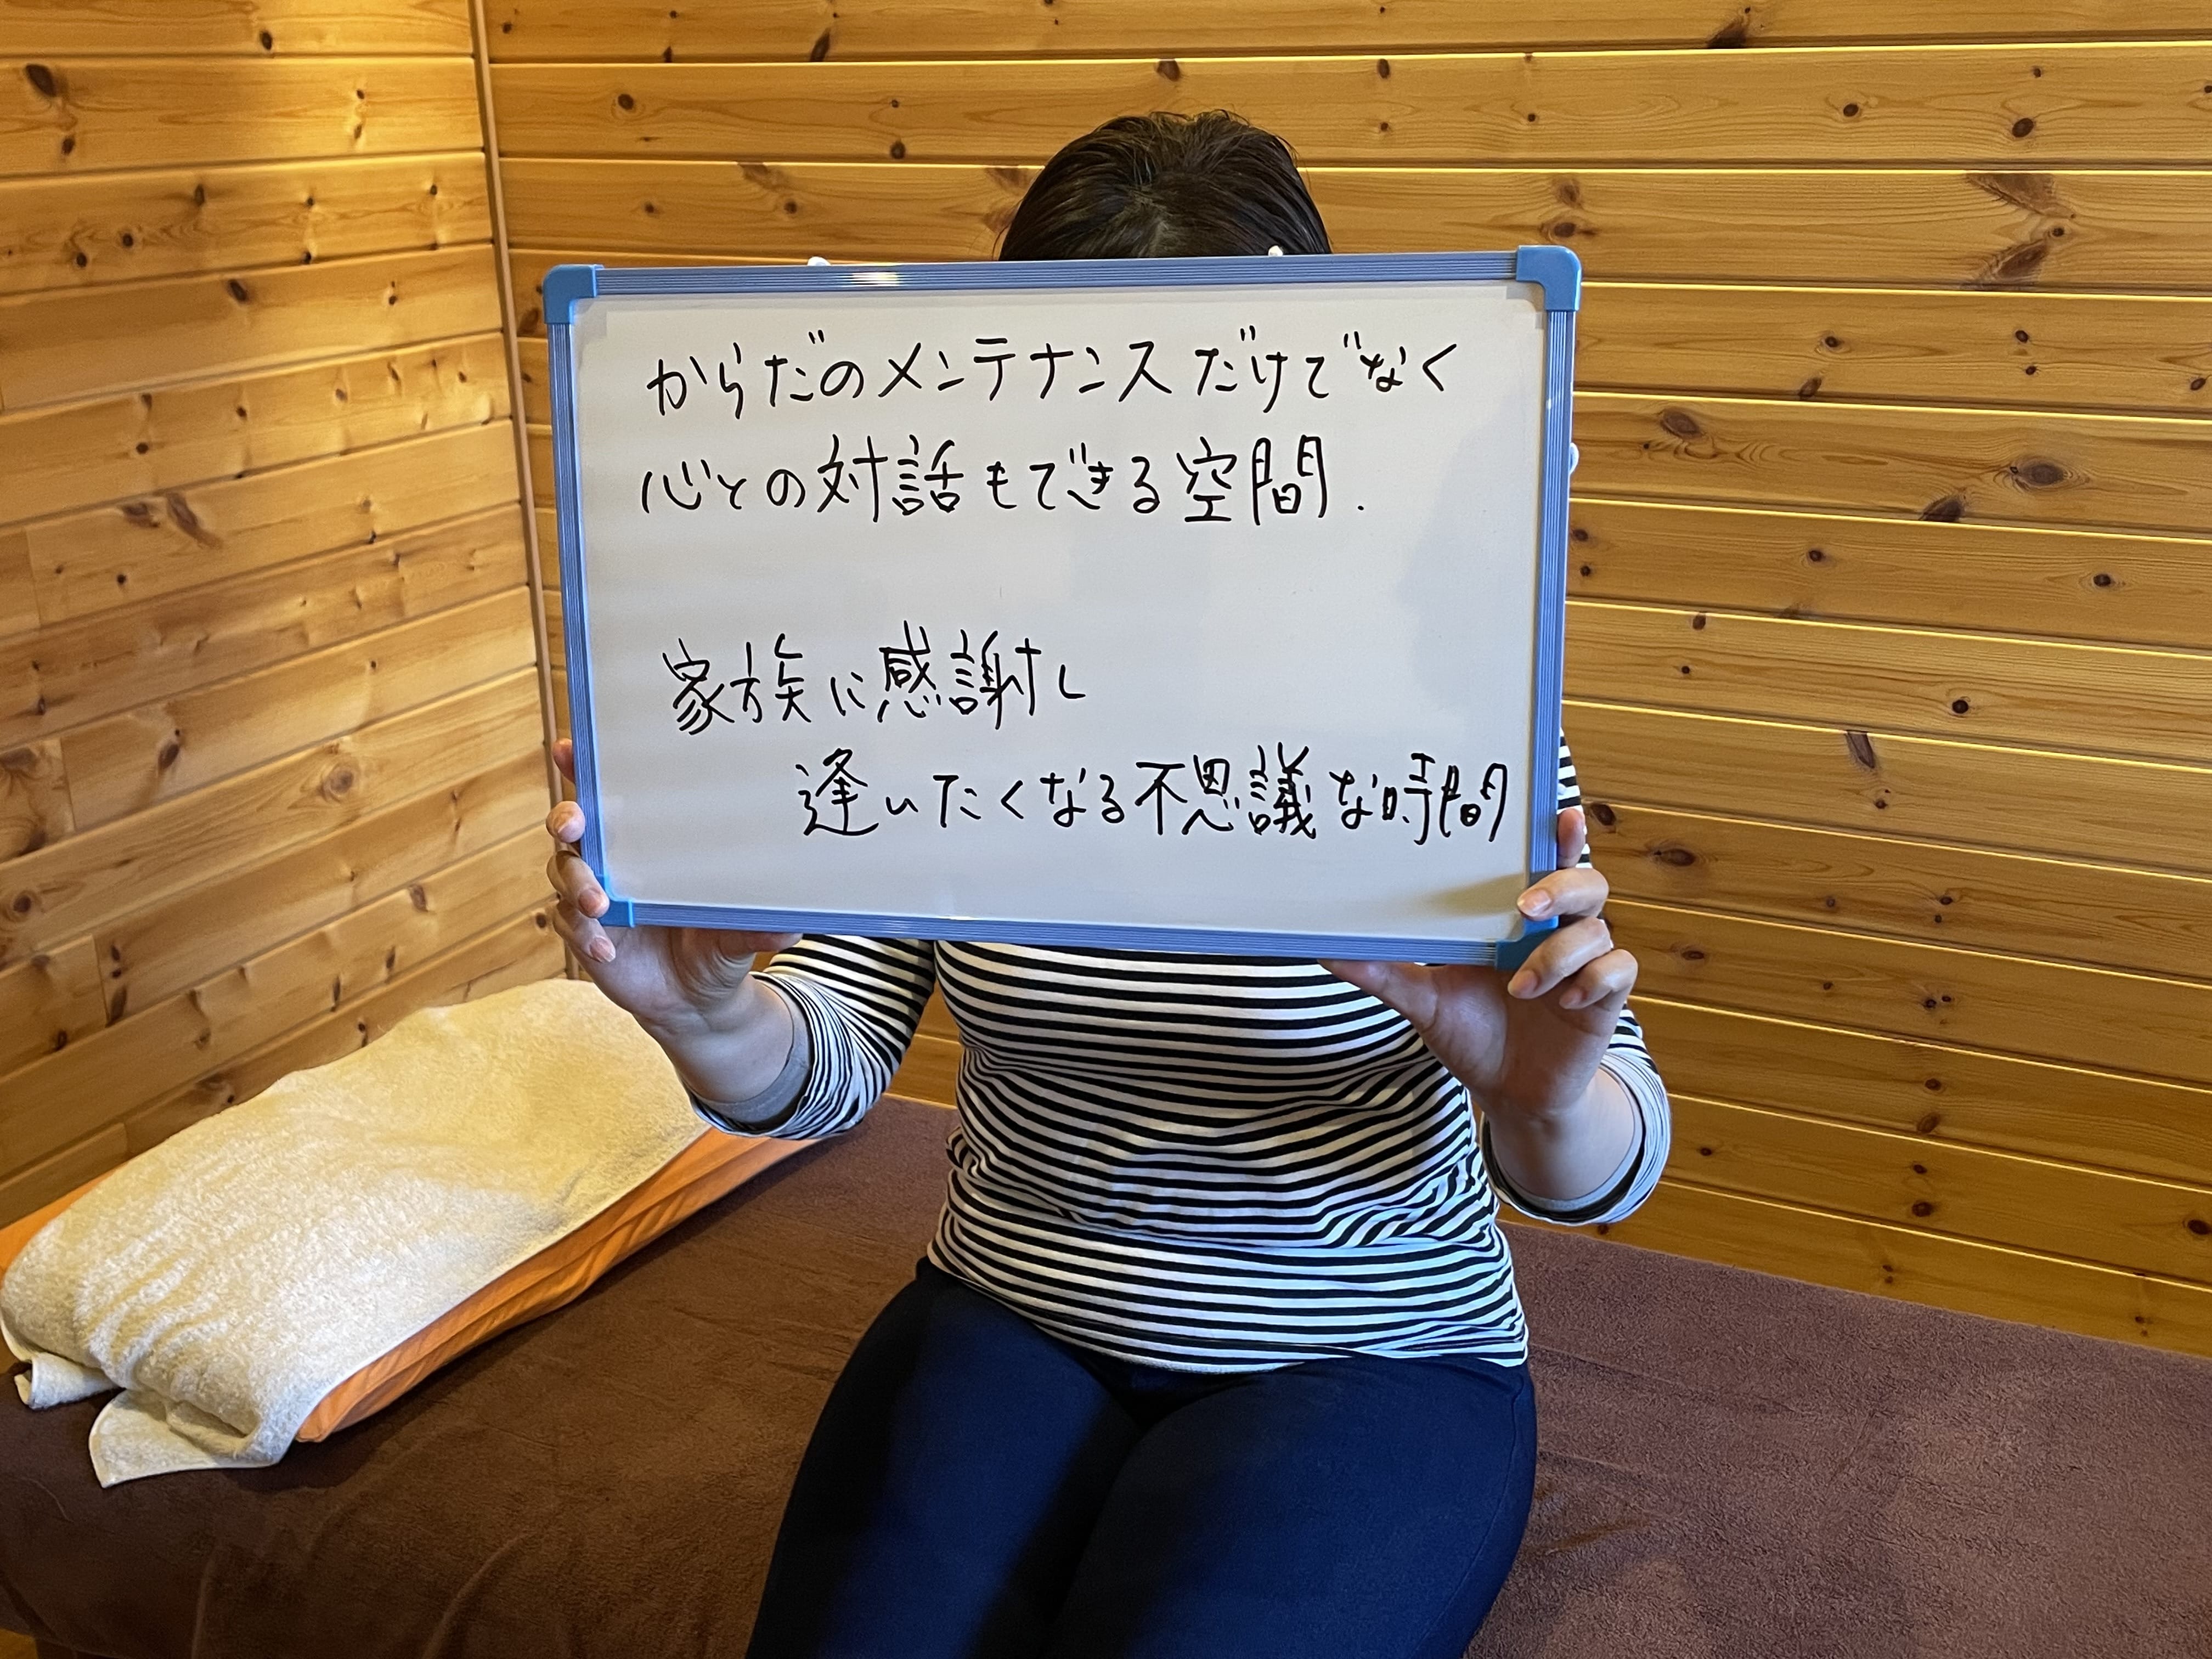 からだのメンテナンスだけでなく
心との対話もできる空間.
家族に感謝し
逢いたくなる不思議な時間